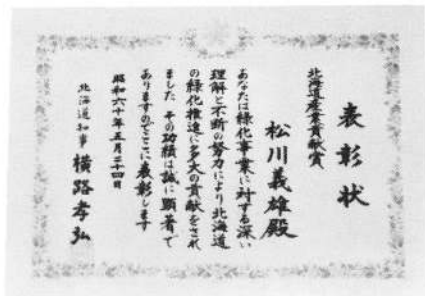 表彰状
北海道産業貢献賞
松川義雄殿
あなたは緑化事業に対する深い
理解と不断の努力により北海道
の緑化推進に多大の貢献をされ
ました その功績は誠に顕著で
ありますのでここに表彰します
昭和六十年五月二十四日
北海道知事 横路孝弘